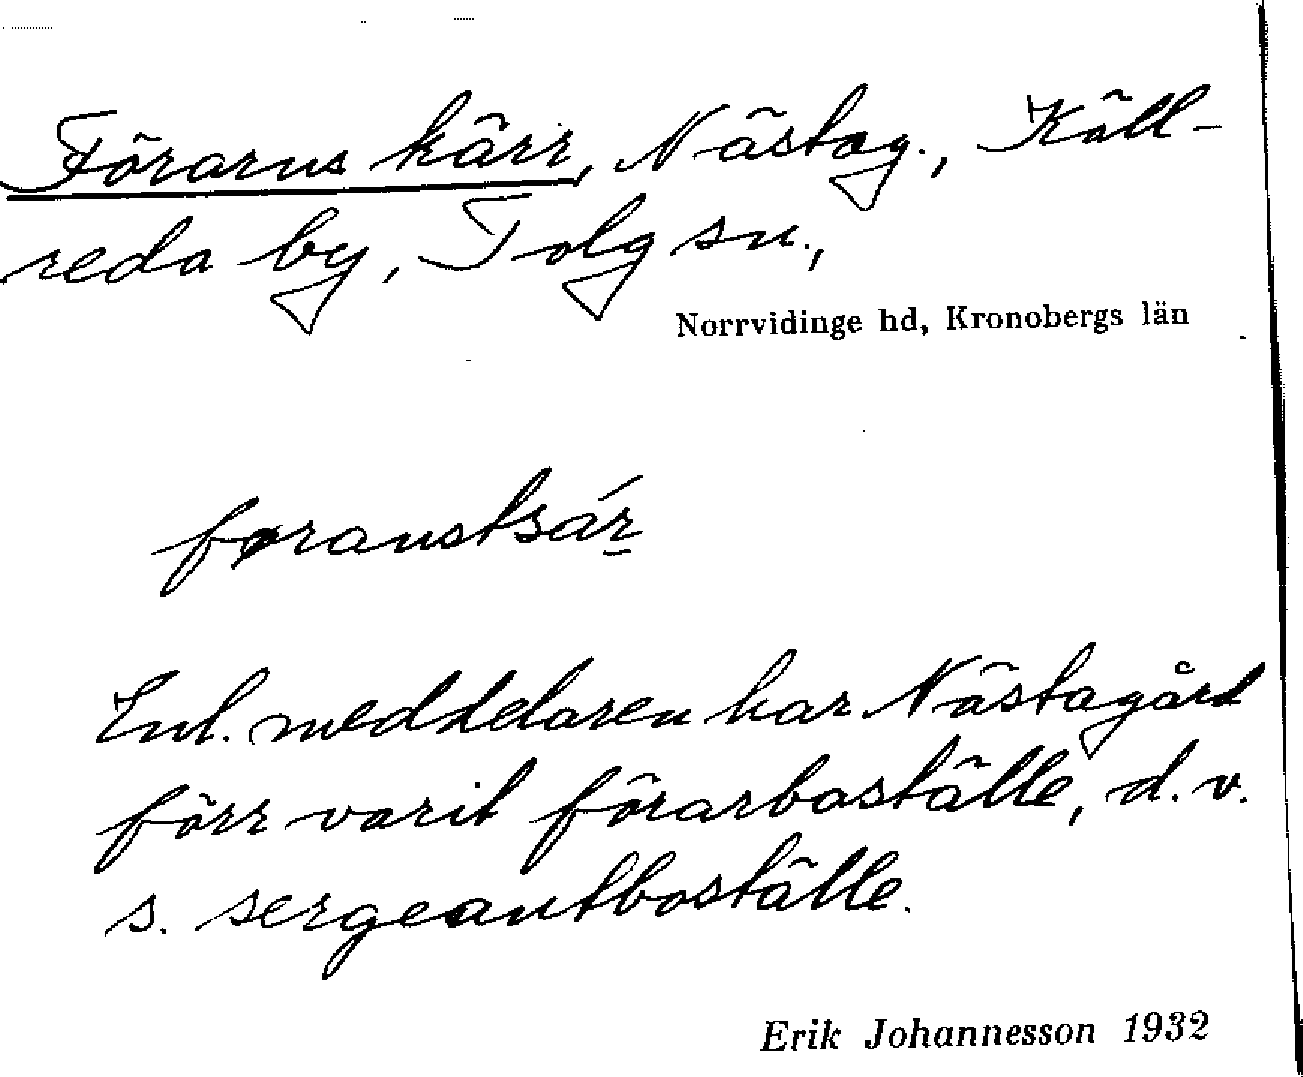 Förarns kärr, Nästag., Käll-
reda by, Tolg sn.,
Norrvidinge hd, Kronobergs län
Enl. meddelaren har Nästagård
förr varit förarboställe, d. v.
s. sergeantboställe.
Erik Johannesson 1932